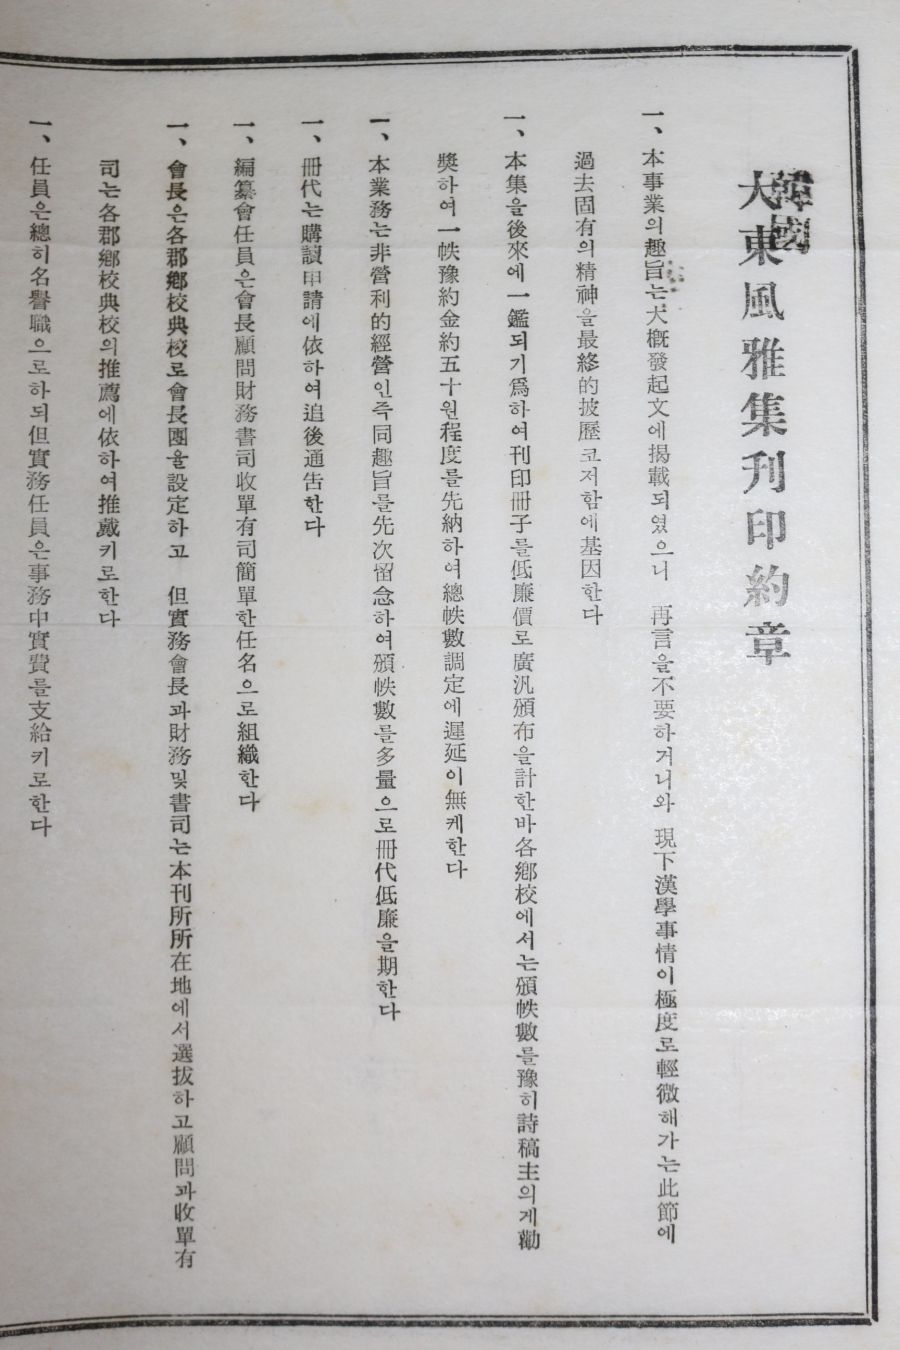 韓國
大東風雅集刊印約章
一、本事業의趣旨는大槪發起文에揭載되였으니 再言을不要하거니와 現下漢學事情이極度로輕微해가는此節에
過去固有의精神을最終的披歷코저함에基因한다
一、本集을後來에一鑑되기爲하여刊印冊子를低廉價로廣汎頒布을計한바各鄕校에서는頒帙數를豫히詩稿主의게勸
奬하여一帙豫約金約五十원程度를先納하여總帙數調定에遲延이無케한다
一、本業務는非營利的經營인즉同趣旨를先次留念하여頒帙數를多量으로冊代低廉을期한다
一、冊代는購讀申請에依하여追後通告한다
一、編纂會任員은會長顧問財務書司收單有司簡單한任名으로組織한다
一、會長은各郡鄕校典校로會長團을設定하고 但實務會長과財務및書司는本刊所所在地에서選拔하고顧問과收單有
司는各郡鄕校典校의推薦에依하여推戴키로한다
一、任員은總히名譽職으로하되但實務任員은事務中實費를支給키로한다